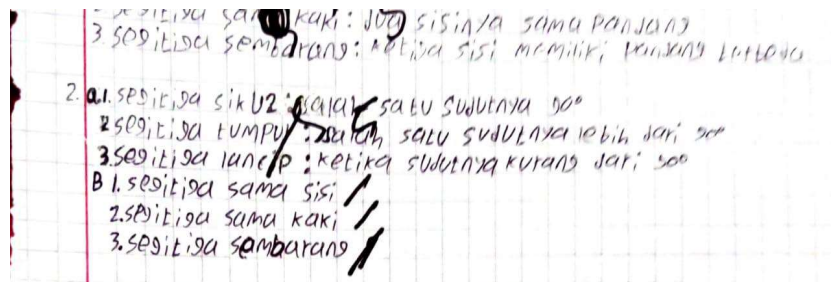 2. segitiga sama kaki: dua sisinya sama panjang
3. segitiga sembarang: ketiga sisi memiliki panjang berbeda
2. a1. segitiga siku2: salah satu sudutnya 90°
2 segitiga tumpul: salah satu sudutnya lebih dari 90°
3. segitiga lancip: ketika sudutnya kurang dari 90°
B 1. segitiga sama sisi
2. segitiga sama kaki
3. segitiga sembarang